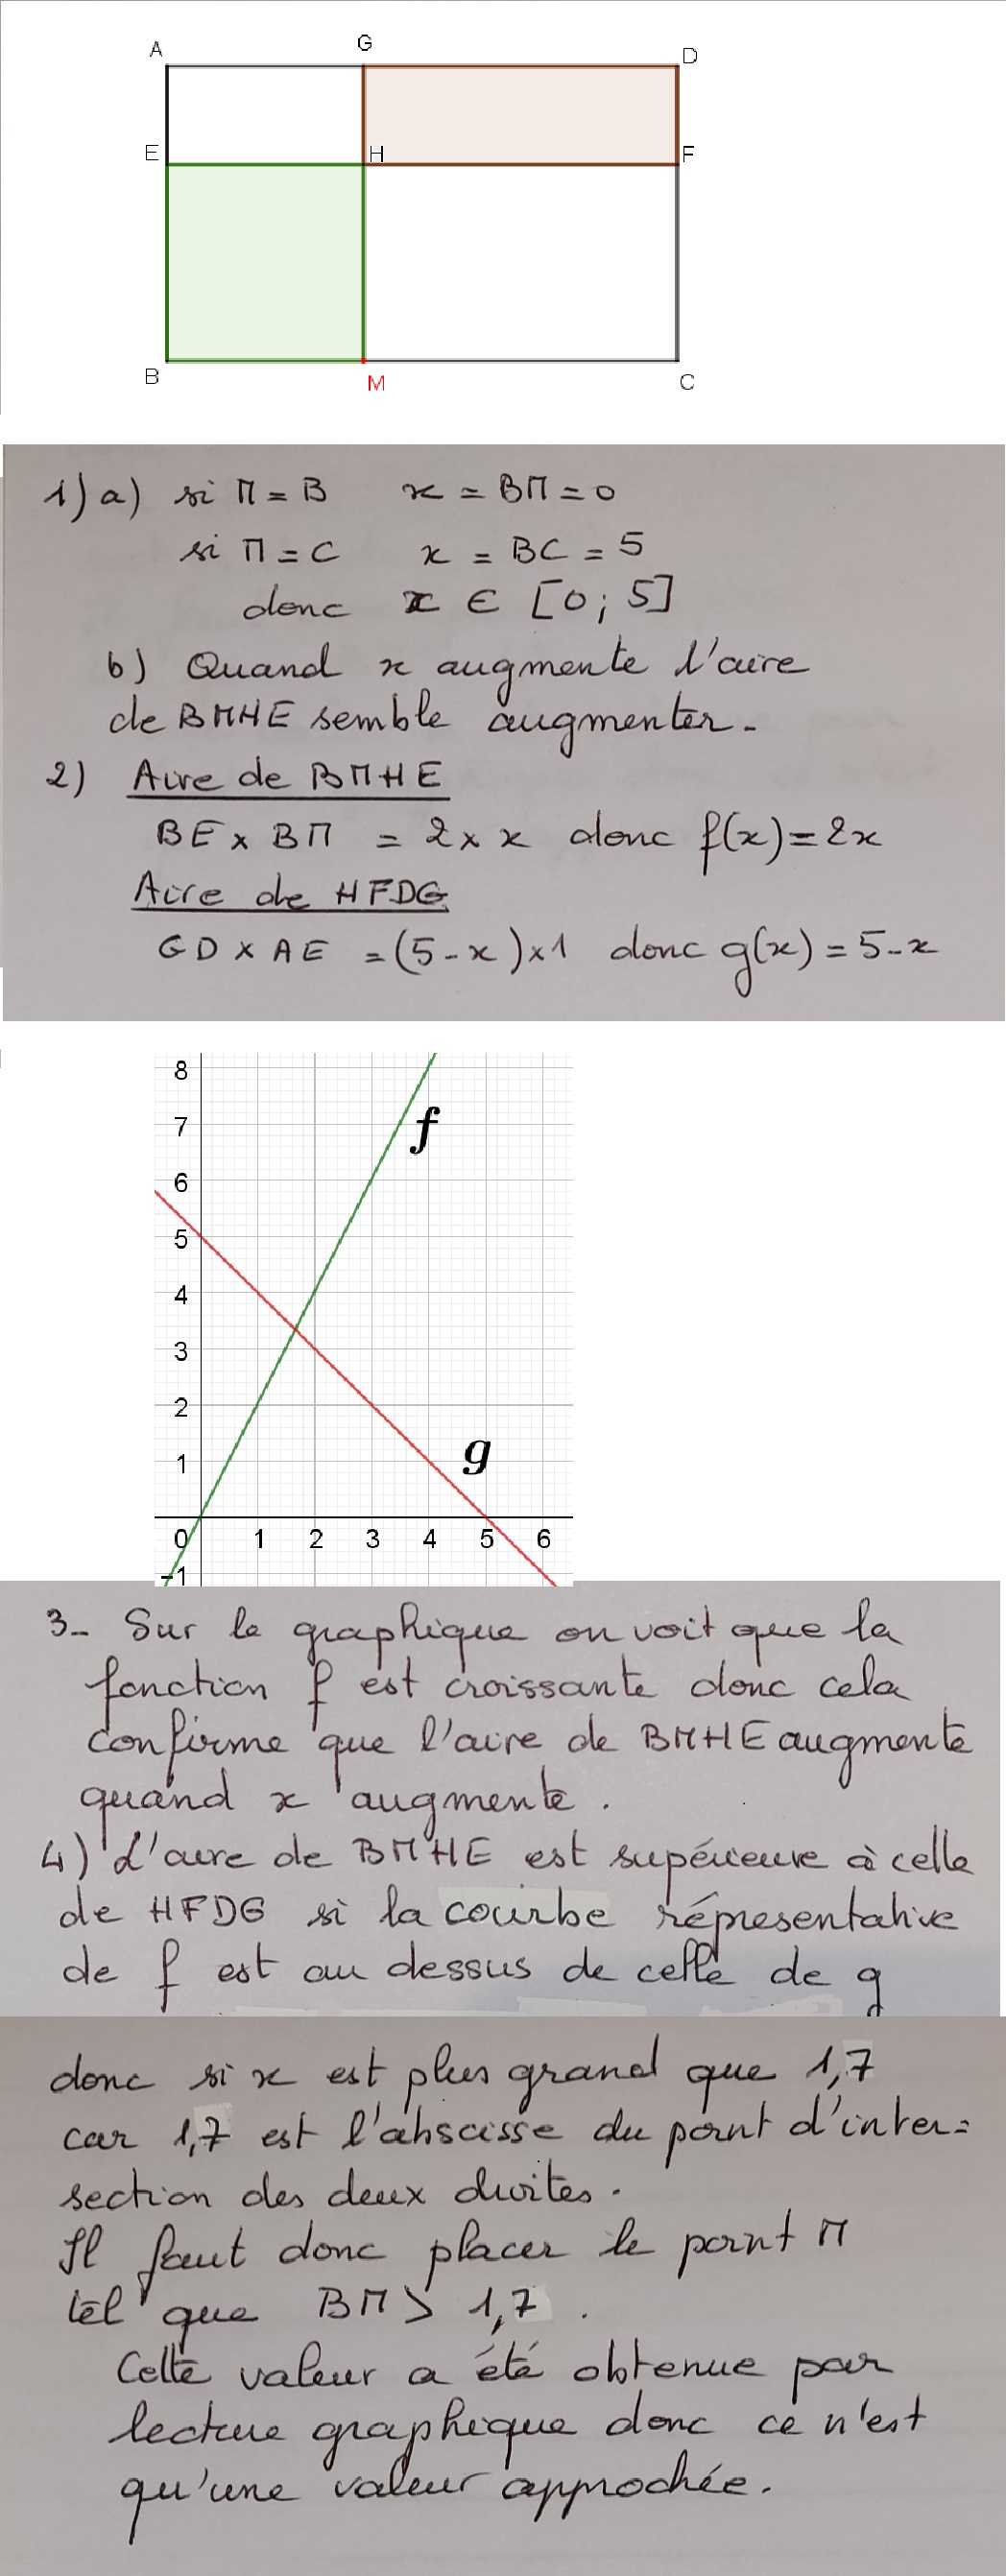 A G D
E H F
B M C
1) a) si M = B x = BM = 0
si M = C x = BC = 5
donc x ∈ [0; 5]
b) Quand x augmente l'aire
de BMHE semble augmenter.
2) Aire de BMHE
BE x BM = 2 x x donc f(x) = 2x
Aire de HFDG
GD x AE = (5 - x) x 1 donc g(x) = 5 - x
8
f
7
6
5
4
3
2
g
1
0 1 2 3 4 5 6
-1
3- Sur le graphique on voit que la
fonction f est croissante donc cela
confirme que l'aire de BMHE augmente
quand x augmente.
4) L'aire de BMHE est supérieure à celle
de HFDG si la courbe réprésentative
de f est au dessus de celle de g
donc si x est plus grand que 1,7
car 1,7 est l'abscisse du point d'inter=
section des deux droites.
Il faut donc placer le point M
tel que BM > 1,7.
Cette valeur a été obtenue par
lecture graphique donc ce n'est
qu'une valeur approchée.